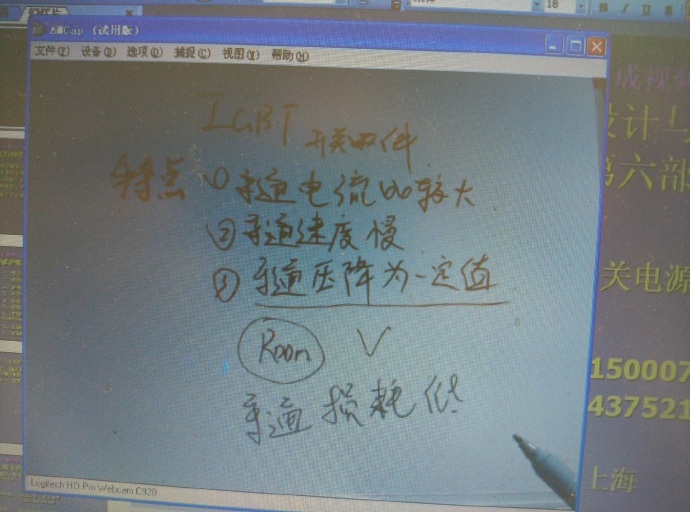 Cap (试用版)
文件(F) 设备(D) 选项(O) 捕捉(C) 视图(V) 帮助(H)
IGBT 开关器件
特点 ① 导通电流比较大
② 导通速度慢
③ 导通压降为一定值
Rdon V
导通损耗低
Logitech HD Pro Webcam C920
18
B I U S
成视频
设计与
第六部
关电源
150007
437521
上海